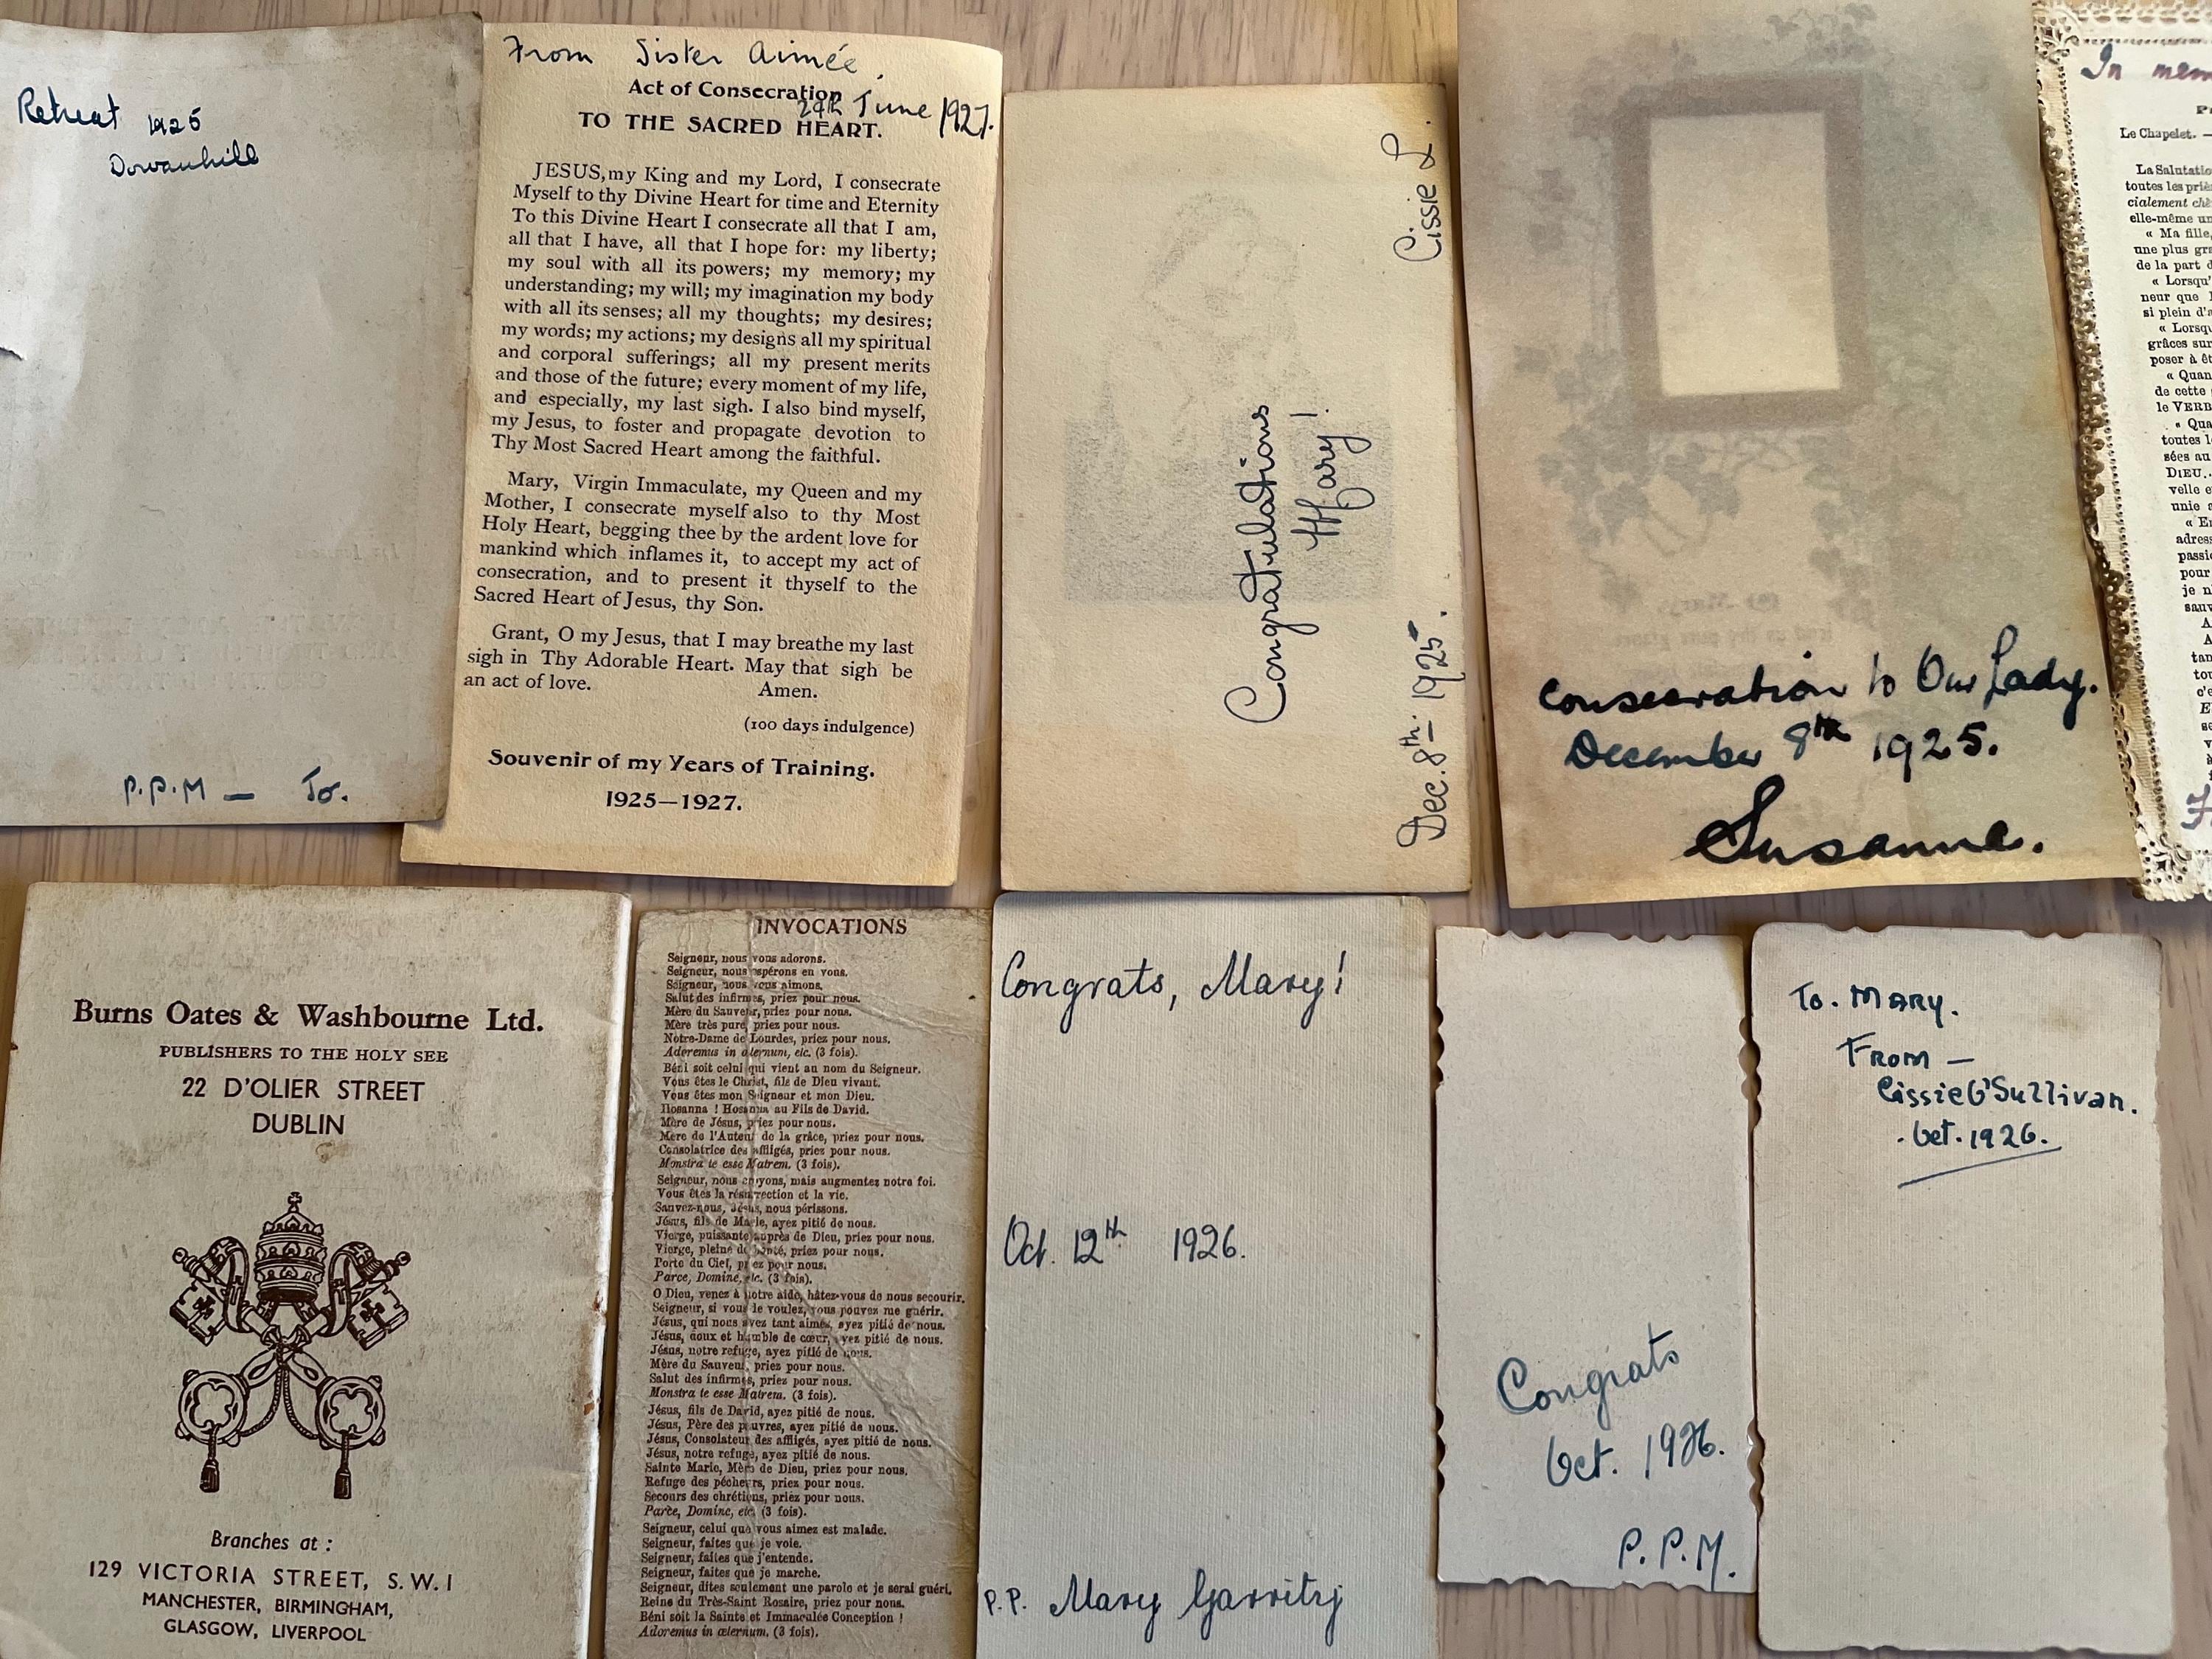 Retreat 1925
Dowanhill
P.P.M — To.
From Sister Aimée.
Act of Consecration
29th June 1927.
TO THE SACRED HEART.
JESUS, my King and my Lord, I consecrate
Myself to thy Divine Heart for time and Eternity
To this Divine Heart I consecrate all that I am,
all that I have, all that I hope for: my liberty;
my soul with all its powers; my memory; my
understanding; my will; my imagination my body
with all its senses; all my thoughts; my desires;
my words; my actions; my designs all my spiritual
and corporal sufferings; all my present merits
and those of the future; every moment of my life,
and especially, my last sigh. I also bind myself,
my Jesus, to foster and propagate devotion to
Thy Most Sacred Heart among the faithful.
Mary, Virgin Immaculate, my Queen and my
Mother, I consecrate myself also to thy Most
Holy Heart, begging thee by the ardent love for
mankind which inflames it, to accept my act of
consecration, and to present it thyself to the
Sacred Heart of Jesus, thy Son.
Grant, O my Jesus, that I may breathe my last
sigh in Thy Adorable Heart. May that sigh be
an act of love. Amen.
(100 days indulgence)
Souvenir of my Years of Training.
1925—1927.
Congratulations
Mary!
Dec. 8th 1925. Cissie L.
Consecration to Our Lady.
December 8th 1925.
Susanne.
In mem
Le Chapelet. —
La Salutatio
toutes les priè
cialement chè
elle-même un
« Ma fille,
une plus gra
de la part d
« Lorsqu'
neur que
si plein d'a
« Lorsqu
grâces sur
poser à êt
« Quan
de cette
le VERB
« Qua
toutes l
sées au
DIEU..
velle e
unie a
« En
adress
passio
pour
je n
sauv
A
A
tan
tou
c'e
E
se
v
Burns Oates & Washbourne Ltd.
PUBLISHERS TO THE HOLY SEE
22 D'OLIER STREET
DUBLIN
Branches at :
129 VICTORIA STREET, S.W.1
MANCHESTER, BIRMINGHAM,
GLASGOW, LIVERPOOL
INVOCATIONS
Seigneur, nous vous adorons.
Seigneur, nous espérons en vous.
Seigneur, nous vous aimons.
Salut des infirmes, priez pour nous.
Mère du Sauveur, priez pour nous.
Mère très pure, priez pour nous.
Notre-Dame de Lourdes, priez pour nous.
Adoremus in æternum, etc. (3 fois).
Béni soit celui qui vient au nom du Seigneur.
Vous êtes le Christ, fils de Dieu vivant.
Vous êtes mon Seigneur et mon Dieu.
Hosanna ! Hosanna au Fils de David.
Mère de Jésus, priez pour nous.
Mère de l'Auteur de la grâce, priez pour nous.
Consolatrice des affligés, priez pour nous.
Monstra te esse Matrem. (3 fois).
Seigneur, nous croyons, mais augmentez notre foi.
Vous êtes la résurrection et la vie.
Sauvez-nous, Jésus, nous périssons.
Jésus, fils de Marie, ayez pitié de nous.
Vierge, puissante auprès de Dieu, priez pour nous.
Vierge, pleine de bonté, priez pour nous.
Porte du Ciel, priez pour nous.
Parce, Domine, etc. (3 fois).
O Dieu, venez à notre aide, hâtez-vous de nous secourir.
Seigneur, si vous le voulez, vous pouvez me guérir.
Jésus, qui nous avez tant aimés, ayez pitié de nous.
Jésus, doux et humble de cœur, ayez pitié de nous.
Jésus, notre refuge, ayez pitié de nous.
Mère du Sauveur, priez pour nous.
Salut des infirmes, priez pour nous.
Monstra te esse Matrem. (3 fois).
Jésus, fils de David, ayez pitié de nous.
Jésus, Père des pauvres, ayez pitié de nous.
Jésus, Consolateur des affligés, ayez pitié de nous.
Jésus, notre refuge, ayez pitié de nous.
Sainte Marie, Mère de Dieu, priez pour nous.
Refuge des pécheurs, priez pour nous.
Secours des chrétiens, priez pour nous.
Parce, Domine, etc. (3 fois).
Seigneur, celui que vous aimez est malade.
Seigneur, faites que je voie.
Seigneur, faites que j'entende.
Seigneur, faites que je marche.
Seigneur, dites seulement une parole et je serai guéri.
Reine du Très-Saint Rosaire, priez pour nous.
Béni soit la Sainte et Immaculée Conception !
Adoremus in æternum. (3 fois).
Congrats, Mary!
Oct. 12th 1926.
P.P. Mary Garritry
Congrats
Oct. 1926.
P.P.M.
To. MARY.
FROM —
Cissie O'Sullivan.
. Oct. 1926.